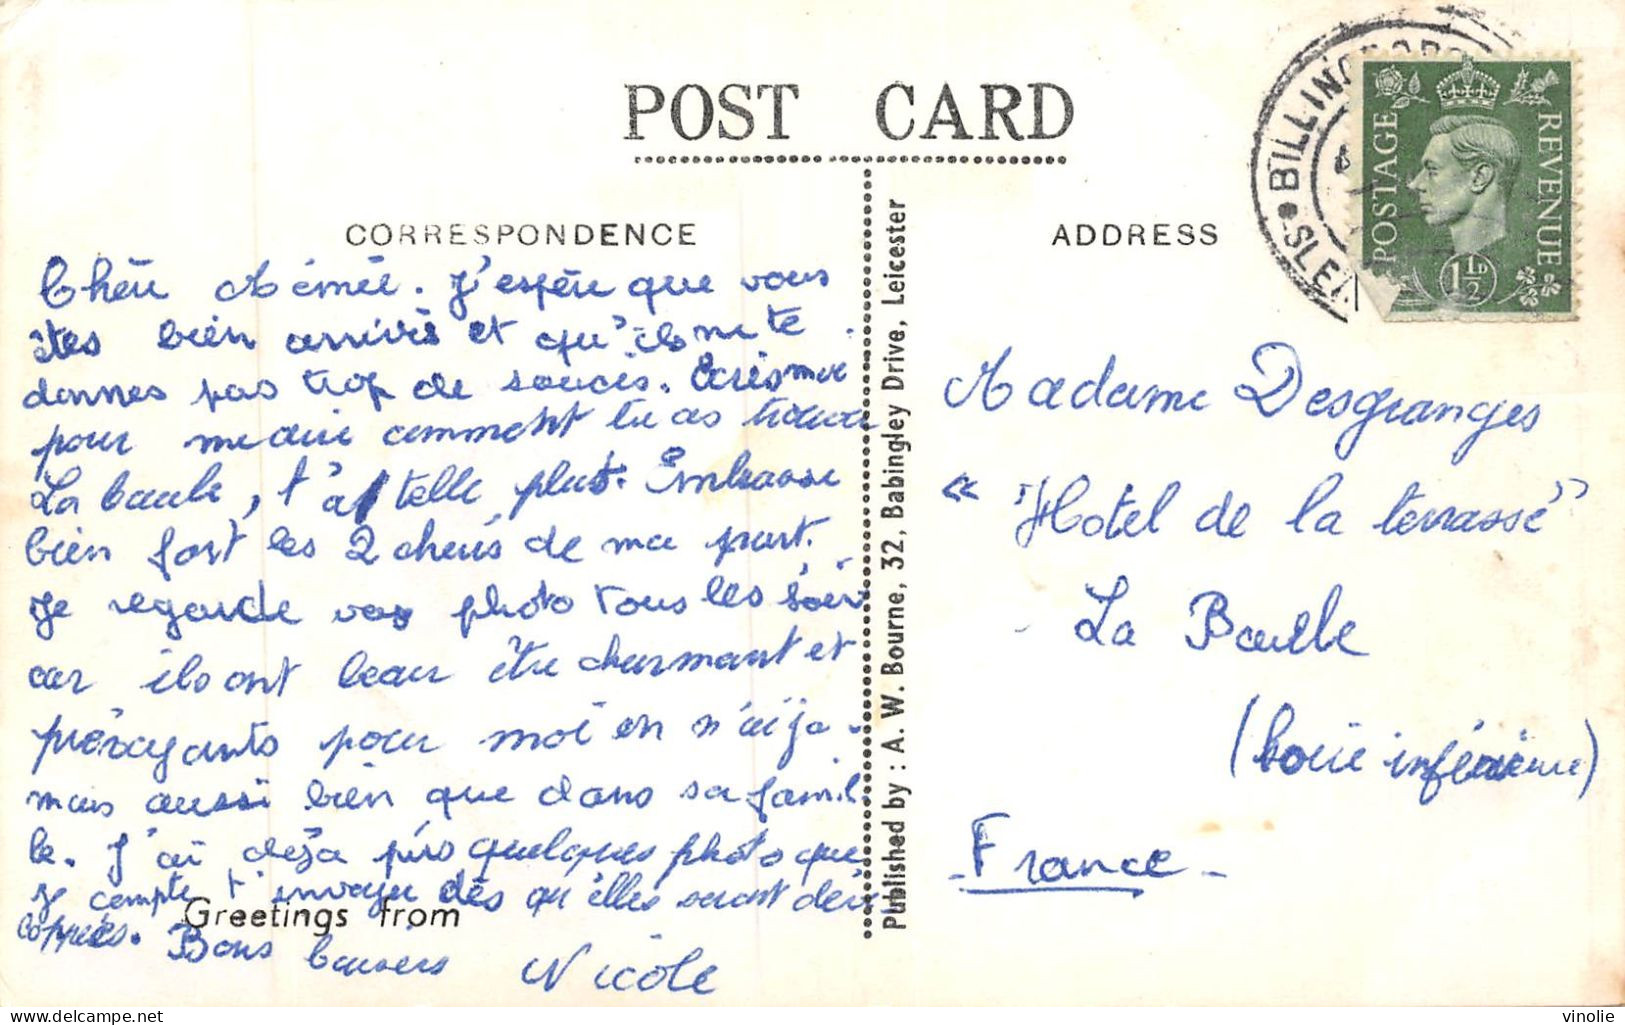 POST CARD
CORRESPONDENCE
Chère Aimée. J'espère que vous
êtes bien arrivés et qu'ils ne te
donnes pas trop de soucis. Ecris moi
pour me dire comment tu as trouvé
La baule, t'a telle plut. Embrasse
bien fort les 2 cheris de ma part.
Je regarde vos photo tous les soir
car ils ont beau être charmant et
pour moi on n'ai ja-
mais aussi bien que dans sa famil
le. J'ai déja pris quelques photo que
je compte t'envoyer dès qu'elles seront déve
loppés. Bons baisers Nicole
Greetings from
Published by: A. W. Bourne, 32, Babingley Drive, Leicester
ADDRESS
BILLING
SLEA
POSTAGE REVENUE
1½D
Madame Desgranges
« Hotel de la terrasse"
La Baule
(Loire inférieure)
- France -
vinolie